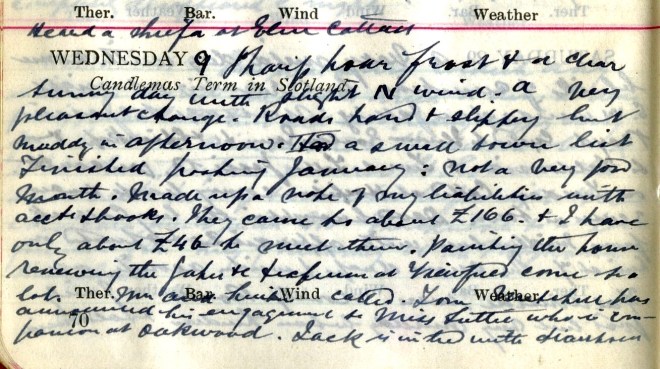 Ther. Bar. Wind Weather
Heard a at Elm Cottage
WEDNESDAY 9 Sharp hoar frost & a clear
Candlemas Term in Scotland
sunny day with slight N wind. A very
pleasant change. Roads hard & slippy but
muddy in afternoon. Had a small town list
Finished posting January: not a very good
month. Made up a note of my liabilities with
accts & books. They came to about £166. & I have
only about £46 to meet them. Painting the house
renewing the & at come to a
lot. Mrs called. Tom has
Ther. Bar. Wind Weather
announced his engagement to Miss who is com-
70
panion at Oakwood. Jack is in bed with